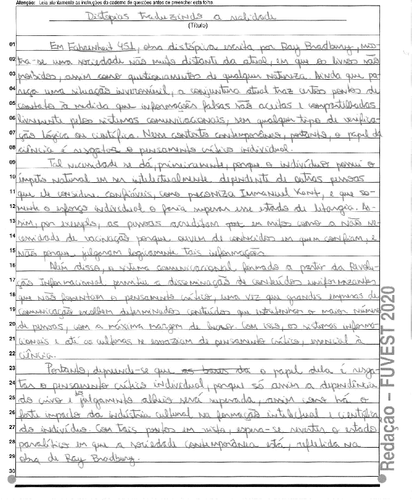 Atenção: Leia atentamente as instruções do caderno de questões antes de preencher esta folha.
Distopias traduzindo a realidade
(Título)
01 Em Fahrenheit 451, obra distópica escrita por Ray Bradbury, mos-
02 tra-se uma sociedade não muito distante da atual, em que os livros são
03 proibidos, assim como questionamentos de qualquer natureza. Ainda que pa-
04 reça uma situação inverossímil, a conjuntura atual traz certos pontos de
05 contato à medida que informações falsas são aceitas e compartilhadas
06 livremente pelos sistemas comunicacionais, sem qualquer tipo de verifica-
07 ção lógica ou científica. Nesse contexto contemporâneo, portanto, o papel da
08 ciência é resgatar o pensamento crítico individual.
09 Tal necessidade se dá, primeiramente, porque o indivíduo possui o
10 ímpeto natural em ser intelectualmente dependente de outras pessoas
11 que ele considera confiáveis, como preconiza Immanuel Kant, e que so-
12 mente o esforço individual o faria superar esse estado de letargia. As-
13 sim, por exemplo, as pessoas acreditam em mitos como a não ne-
14 cessidade de vacinação porque ouvem de conhecidos em quem confiam, e
15 não porque julgaram logicamente tais informações.
16 Além disso, o sistema comunicacional formado a partir da Revolu-
17 ção Informacional permitiu a disseminação de conteúdos uniformizantes
18 que não fomentam o pensamento crítico, uma vez que grandes empresas de
19 comunicação escolhem determinados conteúdos que entretenham o maior número
20 de pessoas, com a máxima margem de lucro. Com isso, os sistemas informa-
21 cionais e até os culturais se esvaziam de pensamento crítico, essencial à
22 ciência.
23 Portanto, depreende-se que o papel dela é resga-
24 tar o pensamento crítico individual, porque só assim a dependência
25 do crivo e julgamento alheios será superada, assim como há o
26 forte impacto da indústria cultural na formação intelectual e científica
27 do indivíduo. Com tais pontos em vista, espera-se reverter o estado
28 em que a sociedade contemporânea está, refletida na
29 obra de Ray Bradbury.
30
Redação – FUVEST 2020